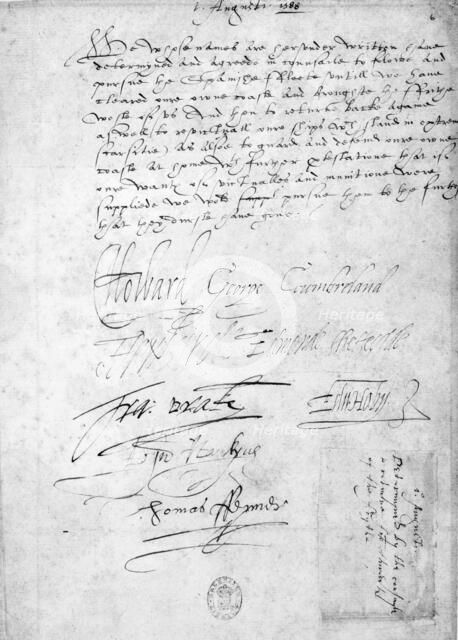 1. Augusti. 1588
6
We whose names are hereunder written have
determyned and agreede in counsaile to folowe and
pursue the Spanishe Fleete untill we have
cleared oure owne coaste and broughte the Frithe
weste of us and then to returne backe againe
as well to revictuall oure ships wch stand in extreme
scarsitie, as alsoe to guard and defend oure owne
coaste at home wth further protestatione that if
oure wants of victualles and munitione were
suppliede we wold pursue them to the furthest
that they durste have gone.
C Howard George Cumbreland
Edmonde Sheffeylde
Fra: Drake Edw Hoby
John Hawkyns
Thomas Fenner
1 Augusti
Determined by the counsaile
to retourne
of the Frythe
Heritage
Heritage
Heritage